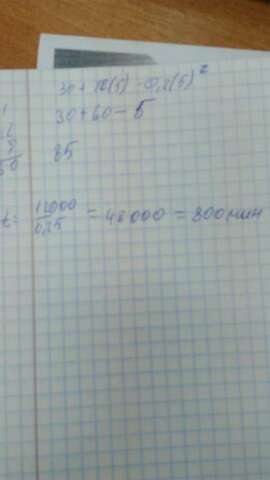 30 + 10(5) - 0,2(5)²
30 + 60 - 5
85
t = 12000/0,25 = 48000 = 800 мин